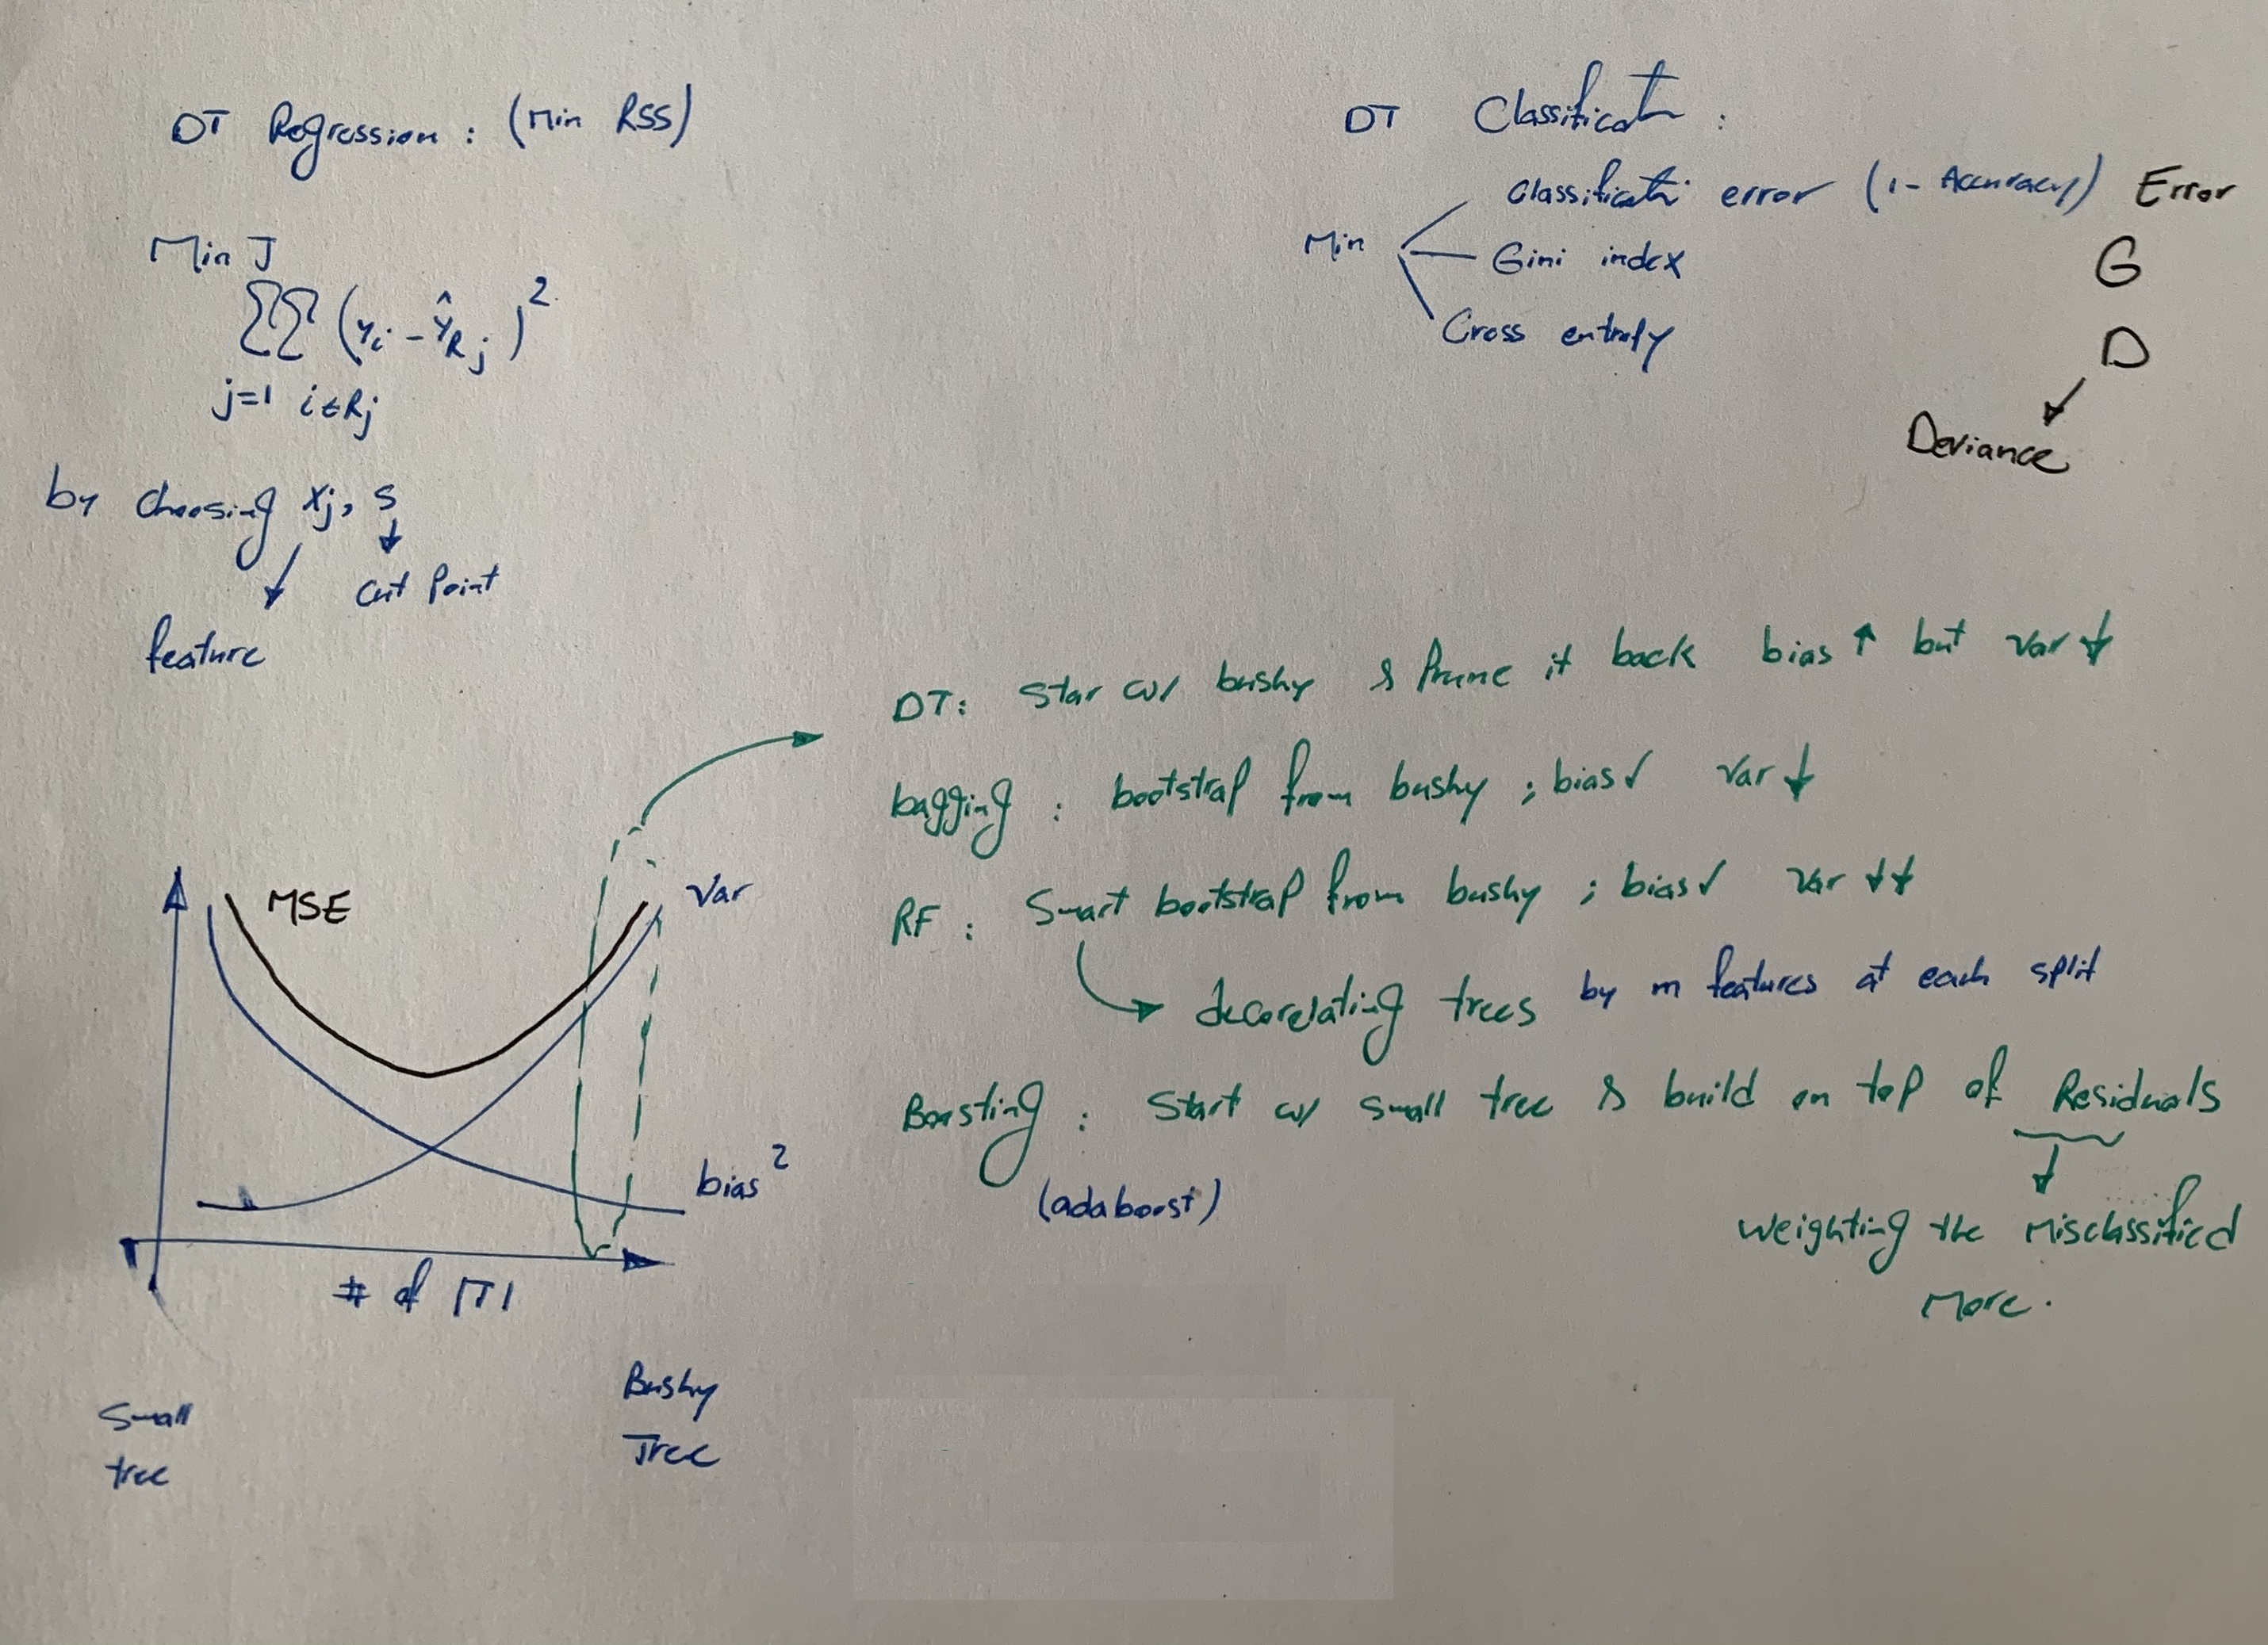 DT Regression : (Min RSS)
Min J
ΣΣ (yi - ŷRj)²
j=1 i∈Rj
by choosing Xj, s
cut point
feature
DT Classificat :
Classificati error (1- Accuracy) Error
Min
Gini index G
Cross entropy D
Deviance
DT: Star w/ bushy & Prune it back bias ↑ but var ↓
bagging : bootstrap from bushy ; bias ✓ var ↓
RF : Smart bootstrap from bushy ; bias ✓ var ↓↓
decorelating trees by m features at each split
Boosting : Start w/ small tree & build on top of Residuals
(adaboost)
weighting the Misclassified
More.
MSE
Var
bias²
# of |T|
Small
tree
Bushy
Tree